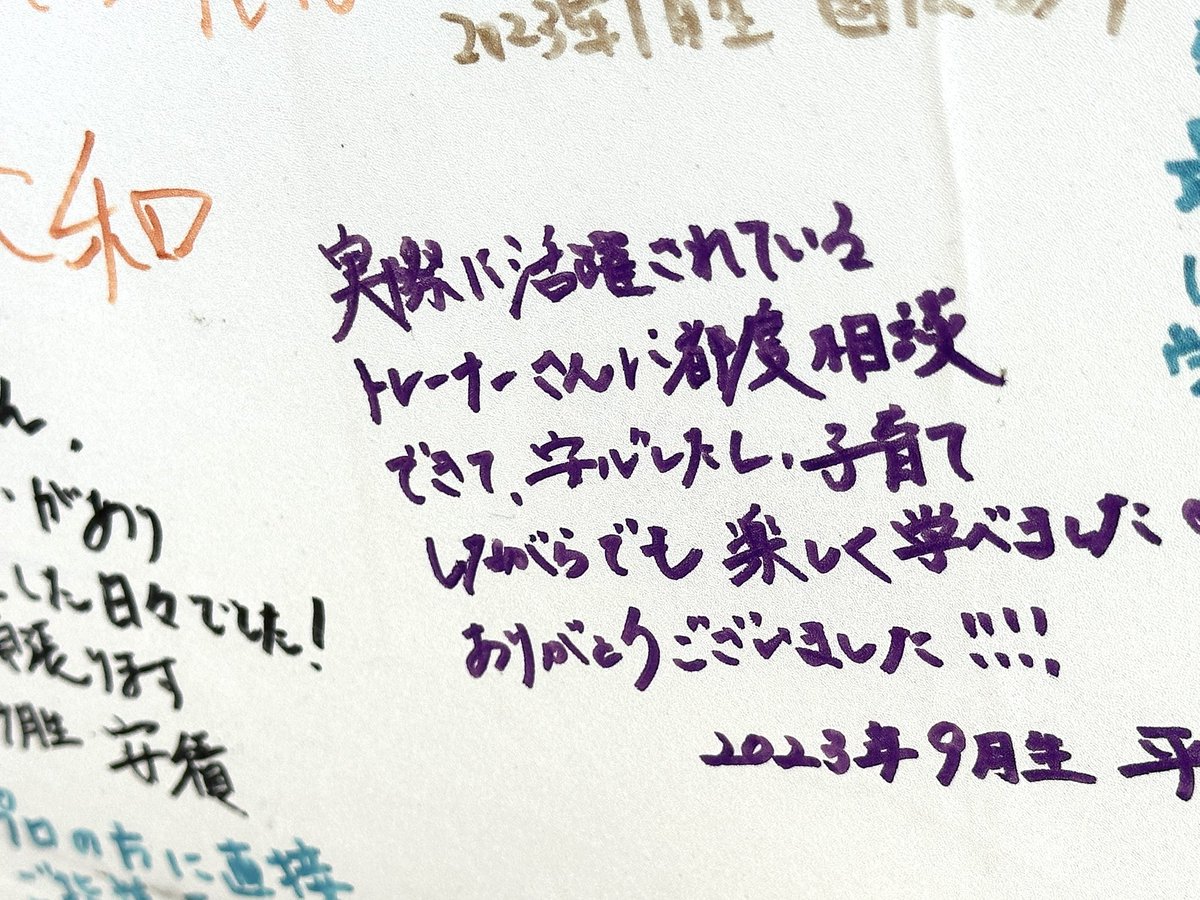 2023年1月生
和
実際に活躍されている
トレーナーさんに都度相談
できて、安心したし、子育て
しながらでも楽しく学べました
ありがとうございました!!!!
2023年9月生 平
ん、
があり
した日々でした!
頑張ります
月生 安積
プロの方に直接